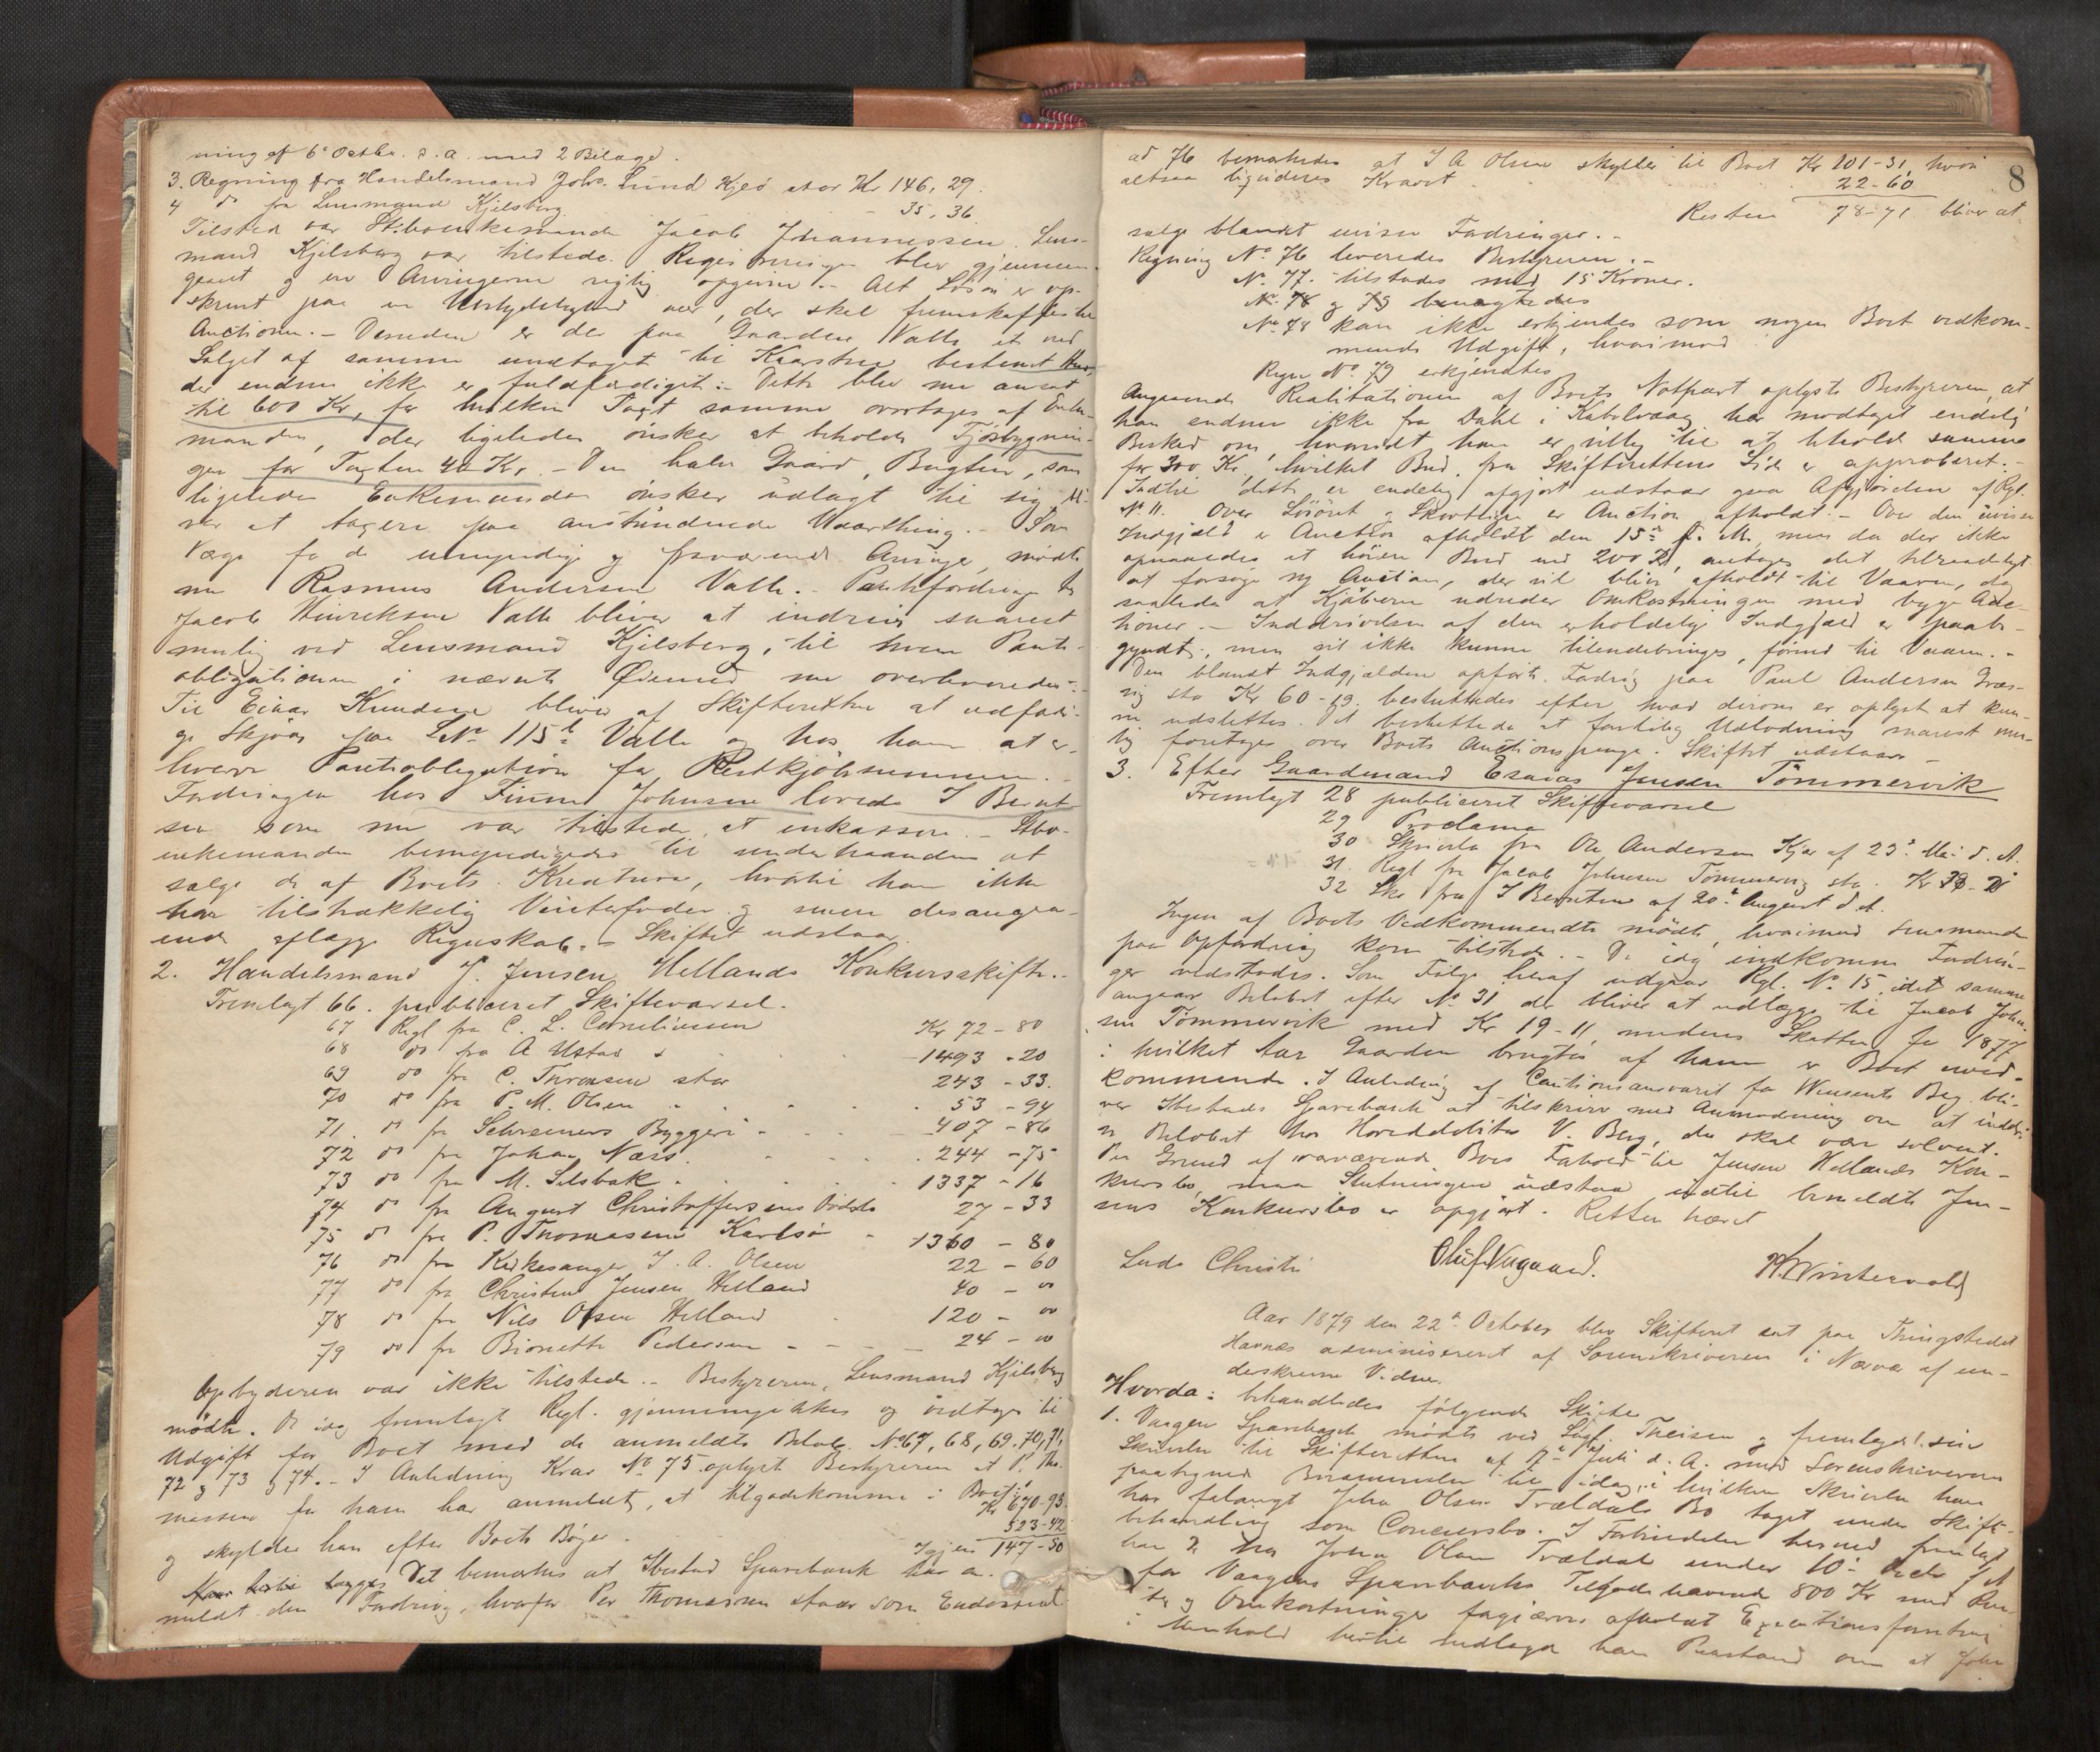 ning af 6te Octbr. d. a. med 2 Bilage.
3. Regning fra Handelsmand Johs. Lund Kjeö stor Kr 146, 29.
4 do fra Lensmand Kjelsberg - 35, 36
Tilstede var Stboenkemanden Jacob Johannessen. Lens-
mand Kjelsberg var tilstede. Registreringen blev gjennem-
gaaet og er Arvingerne rigtig opgivne. - Alt Lösöre er op-
skrevet paa en nær, der skal fremskaffes til
Auctionen. - Desuden er der paa Gaarden Valle et ved
Salget af samme undtaget til Kaarstue bestemt Hus,
der endnu ikke er fuldfærdiget. - Dette blev nu ansat
til 600 Kr, for hvilken Taxt samme overtages af Enke-
manden, der ligeledes önsker at beholde Fjösbygnin-
gen for Taxten 40 Kr. - Den halve Gaard, Bugten, som
ligeledes Enkemanden önsker udlagt til sig bli-
ver at taxere paa anstundende Vaarthing. - Som
Værge for de umyndige og fraværende Arvinger mödte
nu Rasmus Andersen Valle. - Pantefordringen hos
Jacob Hinriksen Valle bliver at inddrive snarest
mulig ved Lensmand Kjelsberg, til hvem Pante-
obligationen i nævnte Öiemed nu overleveredes. -
Til Einar Knudsen bliver af Skifteretten at udfær-
ge Skjöde paa L.No 115b Valle og hos ham at er-
hverve Pantobligation for Restkjöbesummen. -
Fordringen hos Finne Johnsen lovede I Bernt-
sen som nu var tilstede, at inkassere. - Stbo-
enkemanden bemyndigedes til underhaanden at
sælge de af Boets Kreature, hvortil han ikke
har tilstrækkelig Vinterfoder og senere desangaa-
ende aflægge Regnskab. - Skiftet udstaar
2. Handelsmand J. Jensen Hellands Konkursskifte. -
Fremlagt 66. publiceret Skiftevarsel.
67 Regl fra C. L. Corneliussen Kr 72 - 80
68 do fra A Ustad - 1493 - 20
69 do fra C. Thronsen stor 243 - 33.
70 do fra P. M. Olsen 53 - 94
71. do fra Schreiners Byggeri - 407 - 86
72 do fra Johan Næss. 244 - 75
73 do fra M. Selsbak 1337 - 16
74 do fra August Christoffersens Dödsbo 27 - 33
75 do fra P. Thomasen Karlsö 1360 - 80
76 do fra Kirkesanger I. A. Olsen 22 - 60
77 do fra Christen Jensen Helland 40 - 00
78 do fra Nils Olsen Helland 120 - 00
79 do fra Bionette Pedersen 24 - 00
Opbyderen var ikke tilstede. - Bestyreren, Lensmand Kjelsberg
mödte. De idag fremlagte Regl. gjennemgikkes og vedtages til
Udgift for Boet med de anmeldte Beløb No 67, 68, 69. 70, 71,
72 og 73 & 74. - I Anledning Krav No 75 oplyste Bestyreren at P. Tho-
massen for ham har anmeldt, at tilgodekomme i Boet Kr 670-93.
og skylder han efter Boets Böger. 523-42
Igjen 147-50
Det bemærkes at Ibestad Sparebank har an-
meldt den Fordring, hvorfor Per Thomassen staar som Endossent
8
ad 76 bemærkedes at I A Olsen skylder til Boet Kr 101-31, hvori
altsaa liqvideres Kravet 22-60
Resten 78-71 bliver at
sælge blandt uvisse Fordringer. -
Regning No 76 leveredes Bestyreren. -
No. 77. tilstodes med 15 Kroner.
No. 78 og 79 benægtedes
No 78 kan ikke erkjendes som nogen Boet vedkom-
mende Udgift, hvorimod
Regn No. 79 erkjendtes
Angaaende Realitationen af Boets Notpart oplyste Bestyreren, at
han endnu ikke fra Dahl i Kabelvaag har modtaget endelig
Besked om, hvorvidt han er villig til at beholde samme
for 300 Kr. hvilket Bud fra Skifterettens Side er approberet. -
Indtil dette er endelig afgjort udstaar Afgjörelsen af Rgl.
No. 11. Over Lösöret og Skovteigen er Auction afholdt. - Over den uvisse
Indgjæld er Auction afholdt den 15de f. M. men da der ikke
opnaaedes et höiere Bud end 200 Kr, antages det tilraadeligt
at forsöge ny Auction, der vil blive afholdt til Vaaren, dog
saaledes at Kjöberen udreder Omkostningen med begge Auc-
tioner. - Inddrivelsen af den erholdelige Indgjæld er paabe-
gyndt, men vil ikke kunne tilendebringes, förend til Vaaren. -
Den blandt Indgjælden opförte Fordring paa Paul Andersen Græs-
vig sto Kr 60-19. besluttedes efter hvad derom er oplyst at kun-
ne udslettes. Det besluttedes at foreløbig Udlodning snarest mu-
lig foretages over Boets Auctionspenge. Skiftet udstaar -
3. Efter Gaardmand Esaias Jensen Tömmervik
Fremlagt 28 publiceret Skiftevarsel
29 Proclama
30 Skrivelse fra Ole Andersen Kjær af 23de Mai d. A.
31. Regl fra Jacob Johnsen Tömmervig sto. Kr
32 Skr fra I Berntsen af 20de August d. A.
Ingen af Boets Vedkommende mödte, hvorimod Lensmanden
paa Opfordring kom tilstede. - De idag indkomne Fordrin-
ger vedtodes. Som Fölge heraf udgaar Rgl. No. 15, idet samme
angaar Belöbet efter No 31 der bliver at udlægge til Jacob John-
sen Tömmervik med Kr 19-11, medens Skatten for 1877
i hvilket Aar Gaarden brugtes af ham er Boet uved-
kommende. I Anledning af Cautionsansvaret for Winsents Berg bli-
ver Ibestads Sparebank at tilskrive med Anmodning om at inddri-
ve Belöbet hos Hoveddebitor V. Berg, der skal være solvent.
Paa Grund af nærværende Boes Forhold til Jensen Hellands Kon-
kursbo, maa Slutningen udstaa indtil bemeldte Jen-
sens Konkursbo er opgjort. Retten hævet
Ludv Christi Oluf Nygaard. H. Wintervold
Aar 1879 den 22de October blev Skifteret sat paa Thingstedet
Havnes administreret af Sorenskriveren i Nærvær af un-
derskrevne Vidner.
Hvorda: behandledes følgende Skifter
1. Vaagen Sparebank mödte ved Sagf. Theisen og fremlagde 1. sin
Skrivelse til Skifteretten af 12te Juli d. A. med Sorenskriverens
paategnede Berammelse til idag, i hvilken Skrivelse han
har forlangt John Olsen Trældals Bo taget under Skift-
behandling som Concursbo. I Forbindelse hermed fremlagt
han 2 hos John Olsen Trældal under 10de
for Vaagens Sparebanks Tilgodehavende 800 Kr med Ren-
ter og Omkostninger forgjæves afholdt Executionsforretning
i Henhold hertil nedlagde han Paastand om at John